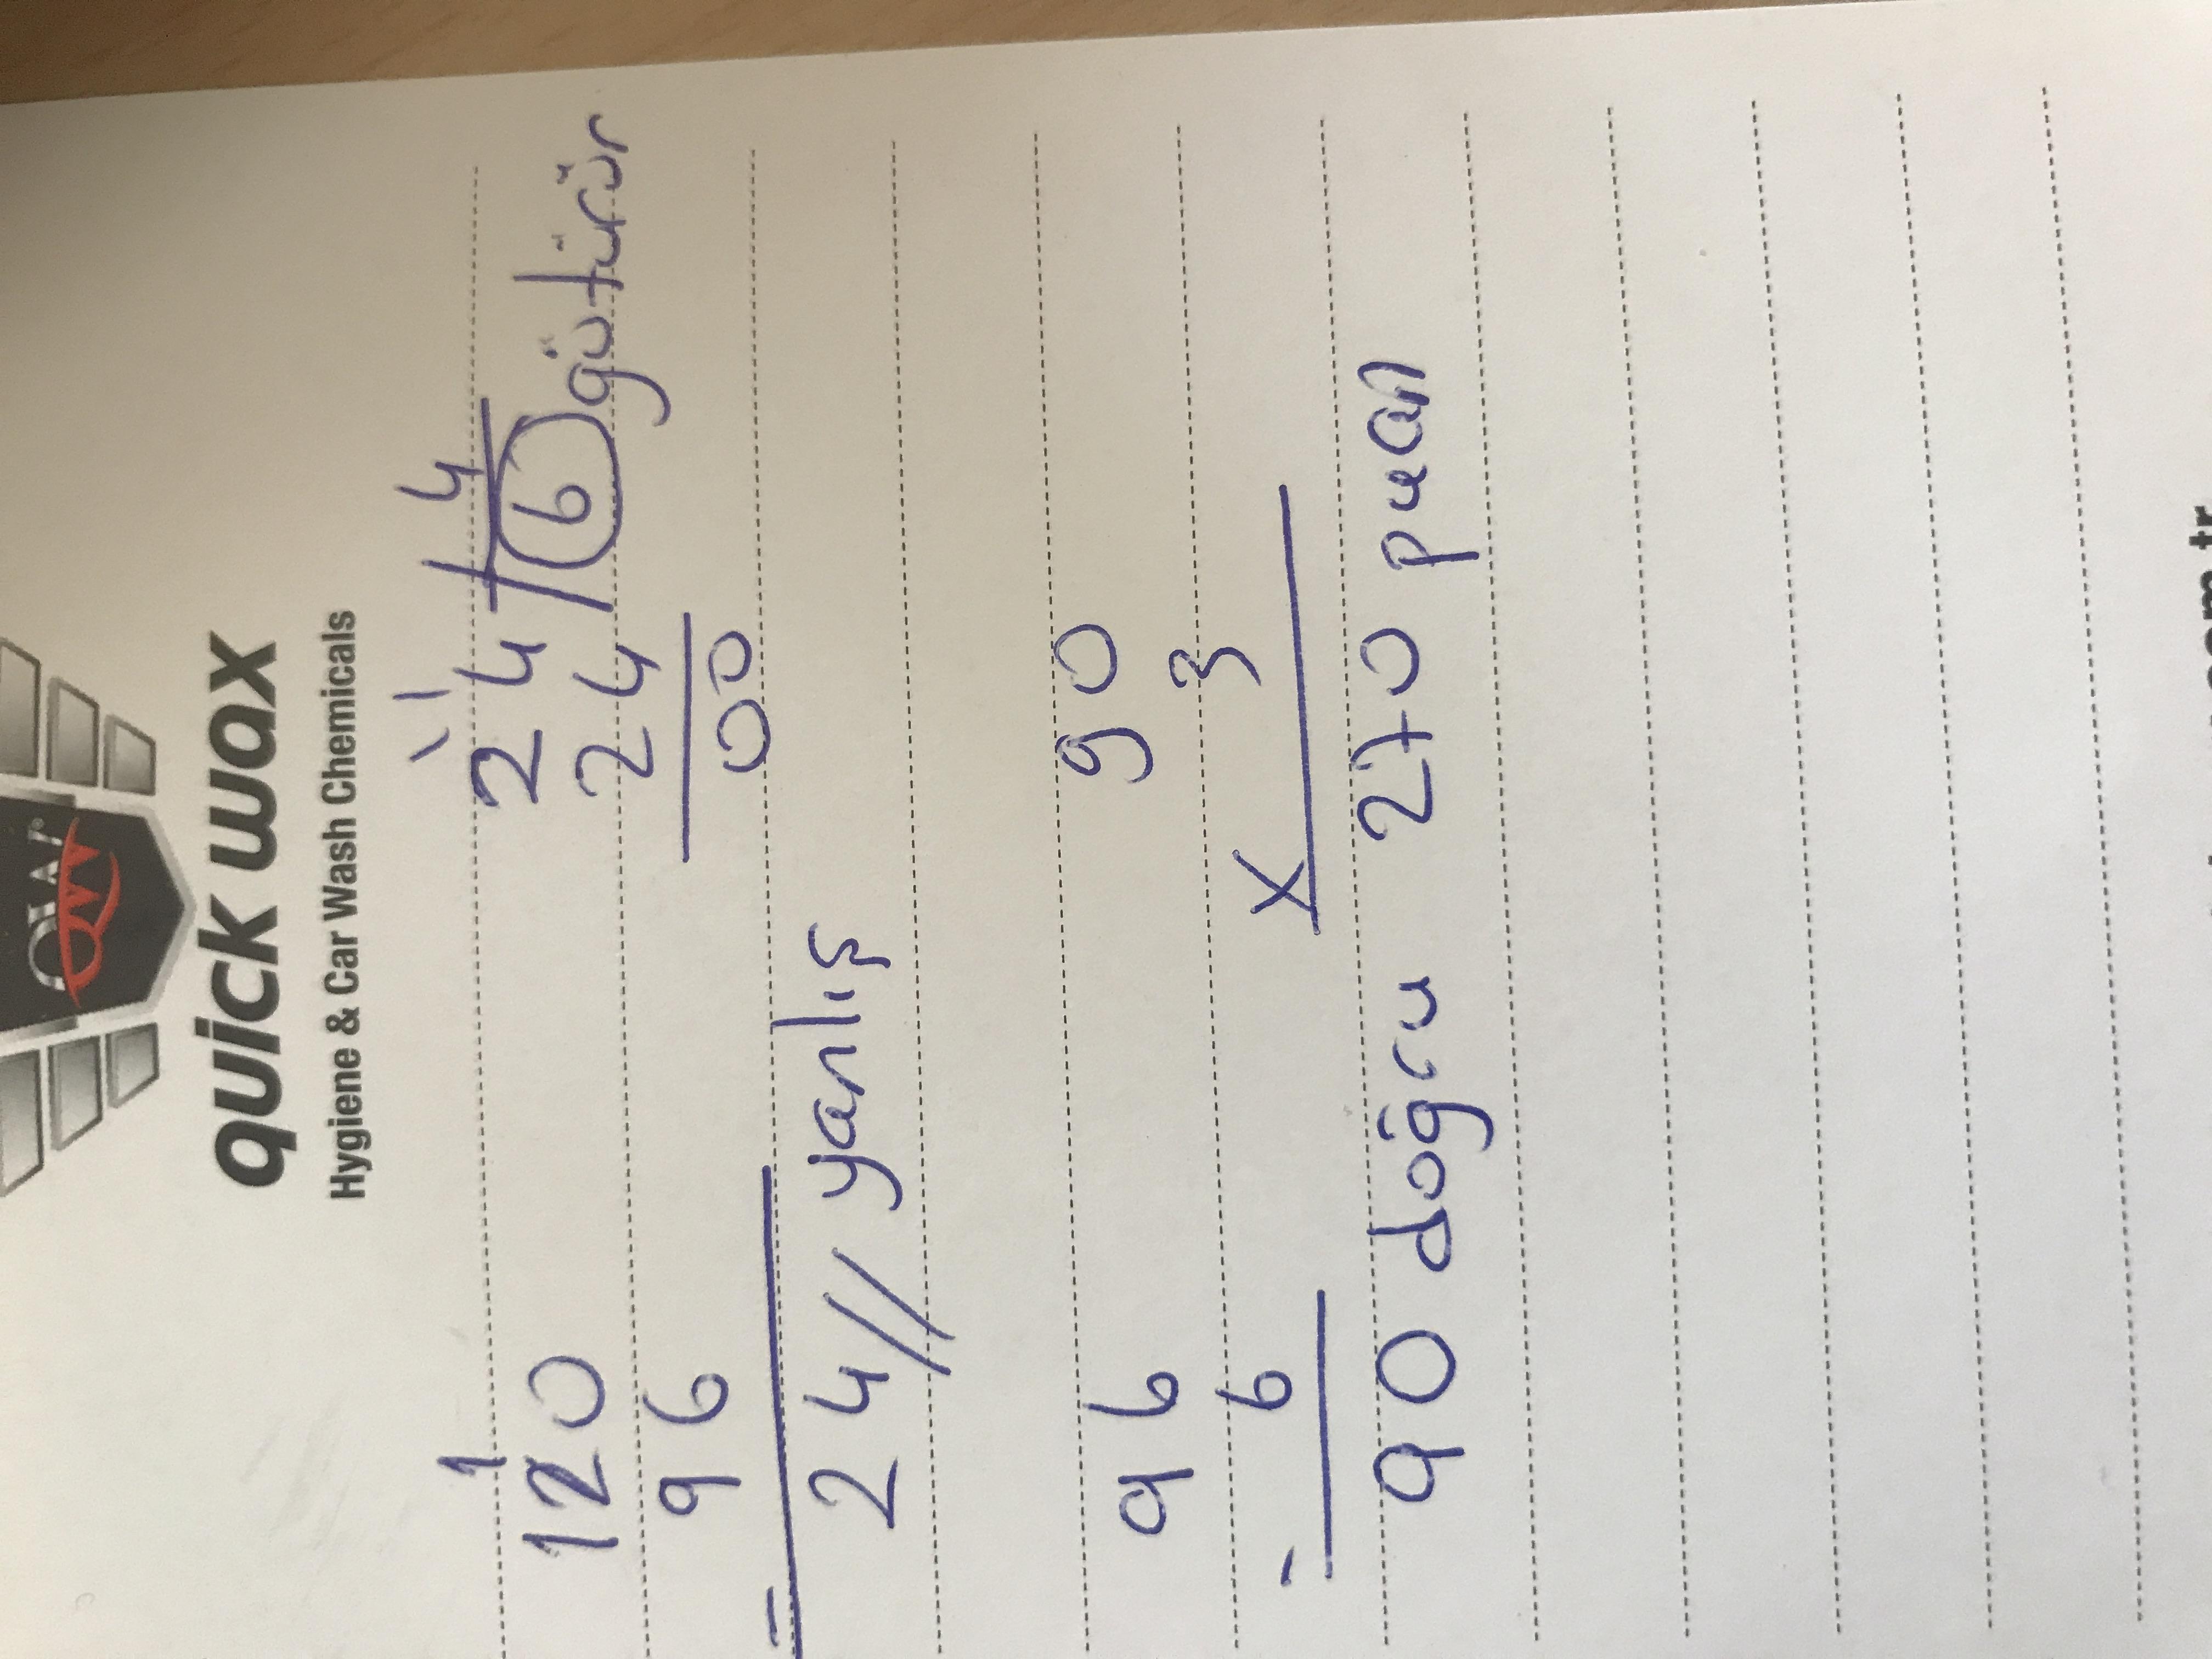 QW
quick wax
Hygiene & Car Wash Chemicals
1
120
96
-
24// yanlış
24 4
24 6 götürür
00
96
- 6
90 doğru
90
x 3
270 puan